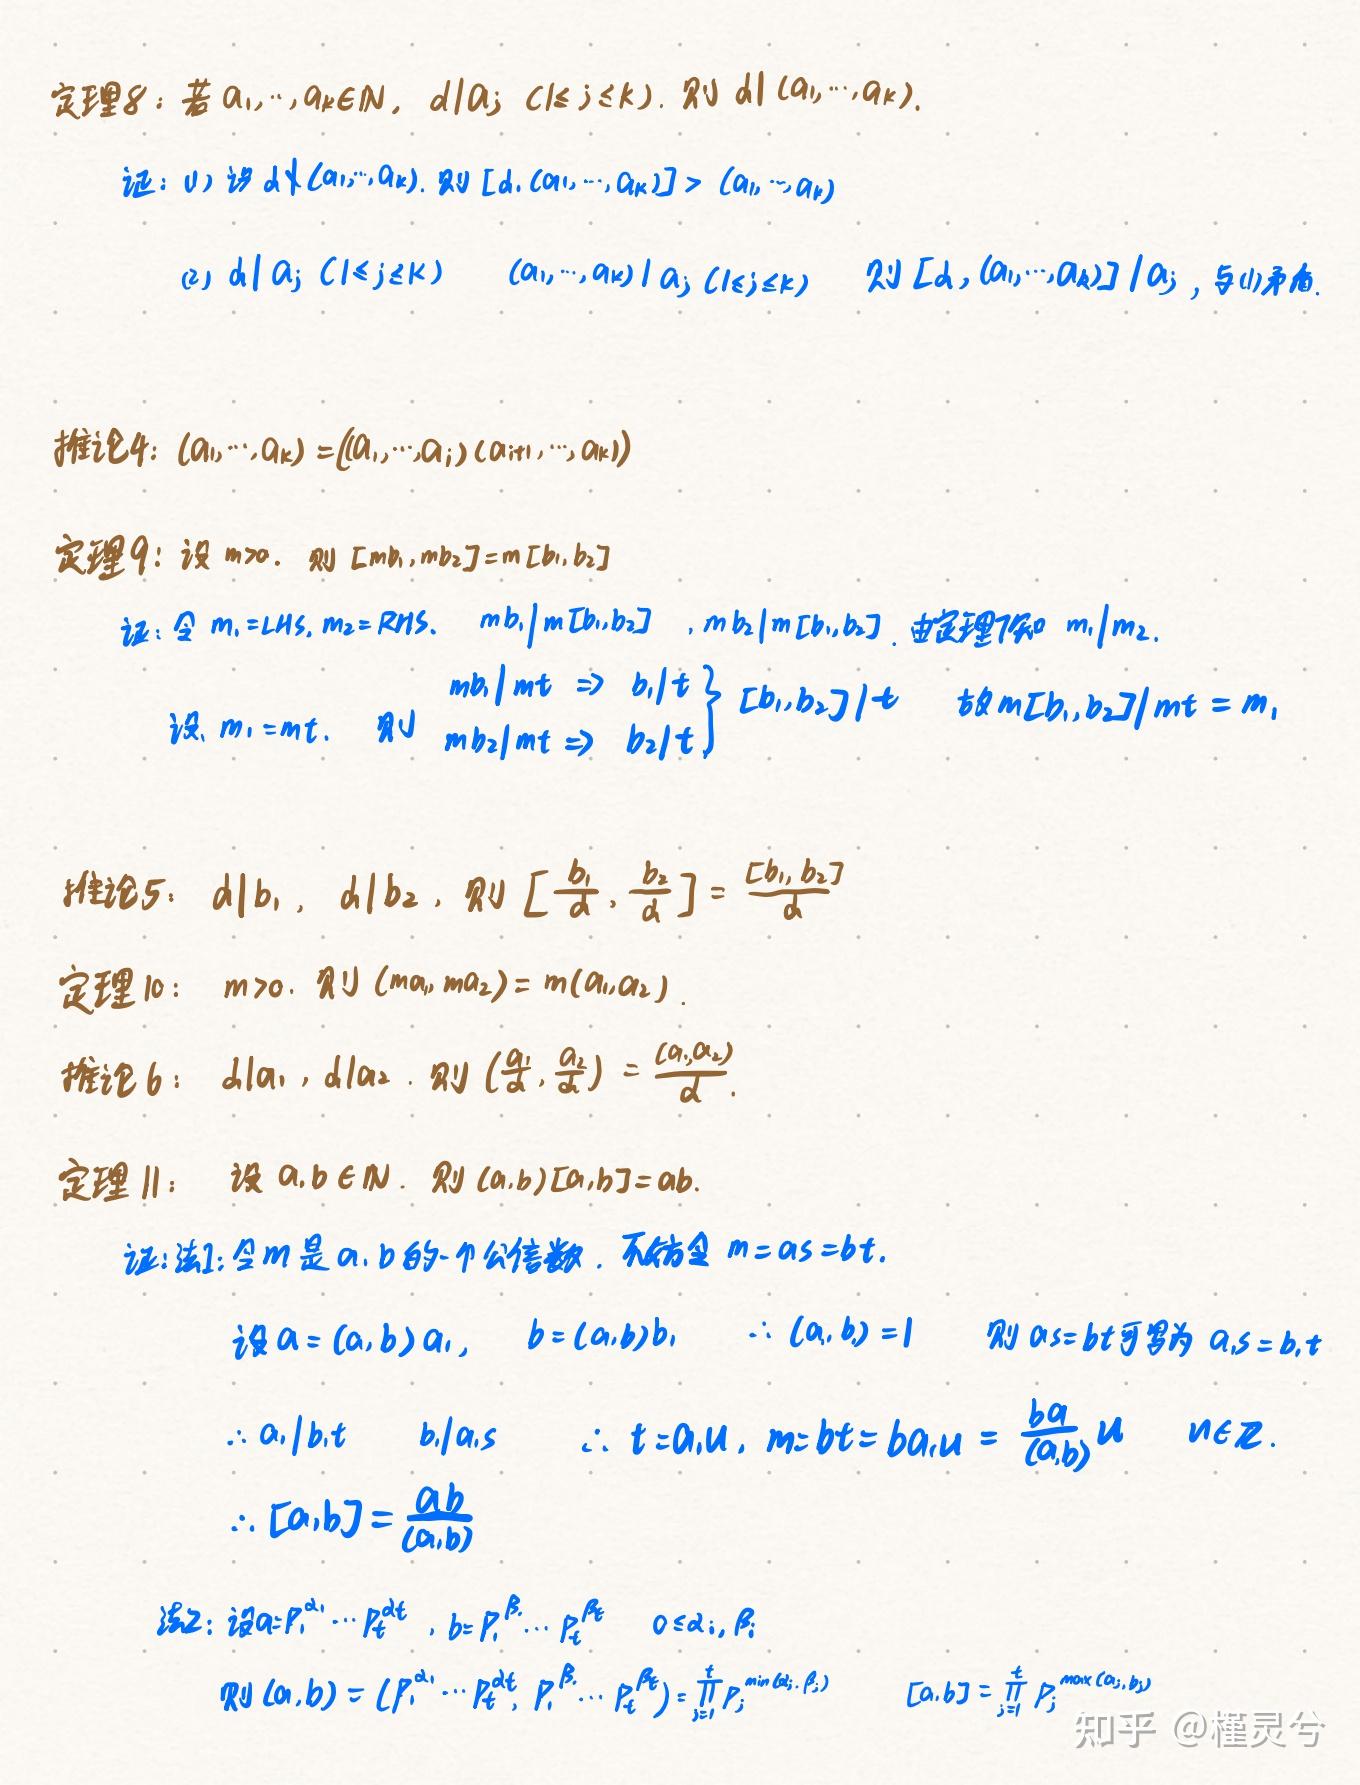 定理8：若 a₁,…,aₖ∈ℕ, d|aⱼ (1≤j≤k). 则 d|(a₁,…,aₖ).
证：(1) 设 d∤(a₁,…,aₖ). 则 [d, (a₁,…,aₖ)] > (a₁,…,aₖ)
(2) d|aⱼ (1≤j≤k) (a₁,…,aₖ)|aⱼ (1≤j≤k) 则 [d, (a₁,…,aₖ)]|aⱼ, 与(1)矛盾.
推论4：(a₁,…,aₖ) = ((a₁,…,aᵢ)(aᵢ₊₁,…,aₖ))
定理9：设 m>0. 则 [mb₁,mb₂]=m[b₁,b₂]
证：令 m₁=LHS, m₂=RHS. mb₁|m[b₁,b₂], mb₂|m[b₁,b₂]. 由定理7知 m₁|m₂.
mb₁|mt ⇒ b₁|t
设 m₁=mt. 则 } [b₁,b₂]|t 故 m[b₁,b₂]|mt = m₁
mb₂|mt ⇒ b₂|t
推论5：d|b₁, d|b₂, 则 [b₁/d, b₂/d] = [b₁, b₂]/d
定理10：m>0. 则 (ma₁,ma₂)=m(a₁,a₂).
推论6：d|a₁, d|a₂. 则 (a₁/d, a₂/d) = (a₁,a₂)/d.
定理11：设 a,b∈ℕ. 则 (a,b)[a,b]=ab.
证：法1：令 m 是 a,b 的一个公倍数. 不妨令 m=as=bt.
设 a=(a,b)a₁, b=(a,b)b₁ ∴ (a₁,b₁)=1 则 as=bt 可写为 a₁s=b₁t
∴ a₁|b₁t b₁|a₁s ∴ t=a₁u, m=bt=ba₁u = ba/(a,b) u u∈ℤ.
∴ [a,b] = ab/(a,b)
法2：设 a=p₁^α₁…pₜ^αₜ, b=p₁^β₁…pₜ^βₜ 0≤αᵢ,βᵢ
则 (a,b) = (p₁^α₁…pₜ^αₜ, p₁^β₁…pₜ^βₜ) = ∏_{j=1}^{t} pⱼ^min(αⱼ,βⱼ) [a,b] = ∏_{j=1}^{t} pⱼ^max(aⱼ,bⱼ)
知乎 @槿灵兮